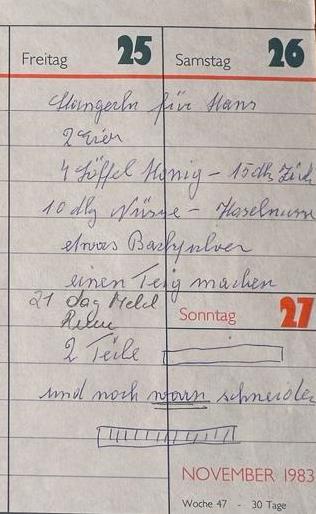 Freitag 25 Samstag 26
Stangerln für Hans
2 Eier
4 Löffel Honig - 15 dkg Zuck
10 dkg Nüsse - Haselnüsse
etwas Backpulver
einen Teig machen
21 dag Mehl
Sonntag 27
2 Teile
und noch warm schneiden
NOVEMBER 1983
Woche 47 - 30 Tage